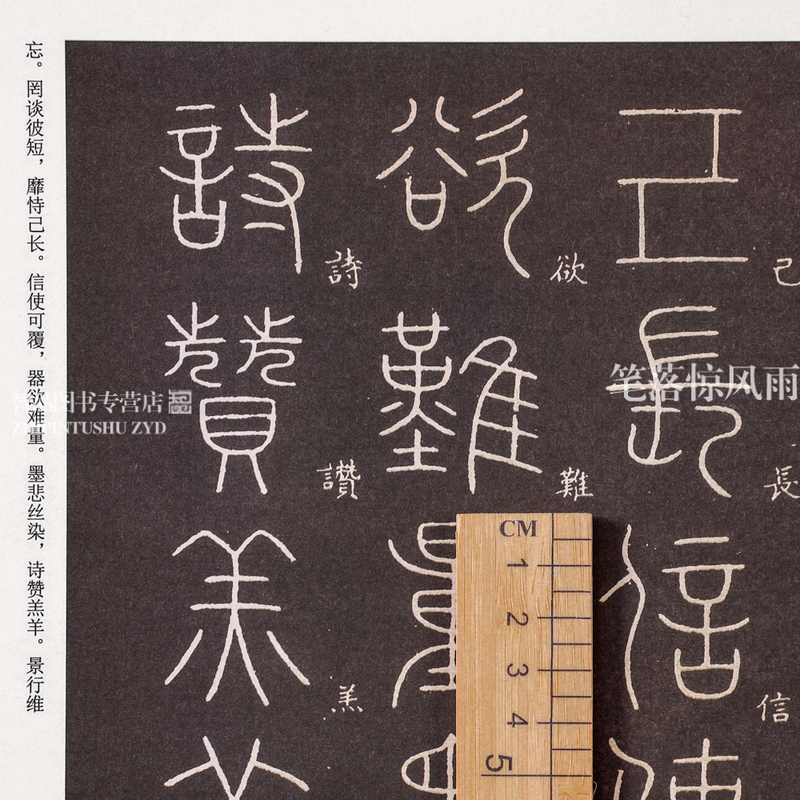 己長信使
己
長
信
欲難量墨
欲
難
詩贊羔羊
詩
讚
羔
忘。罔谈彼短，靡恃己长。信使可覆，器欲难量。墨悲丝染，诗赞羔羊。景行维
笔落惊风雨
图书专营店
ZHIPINTUSHU ZYD
CM
1
2
3
4
5